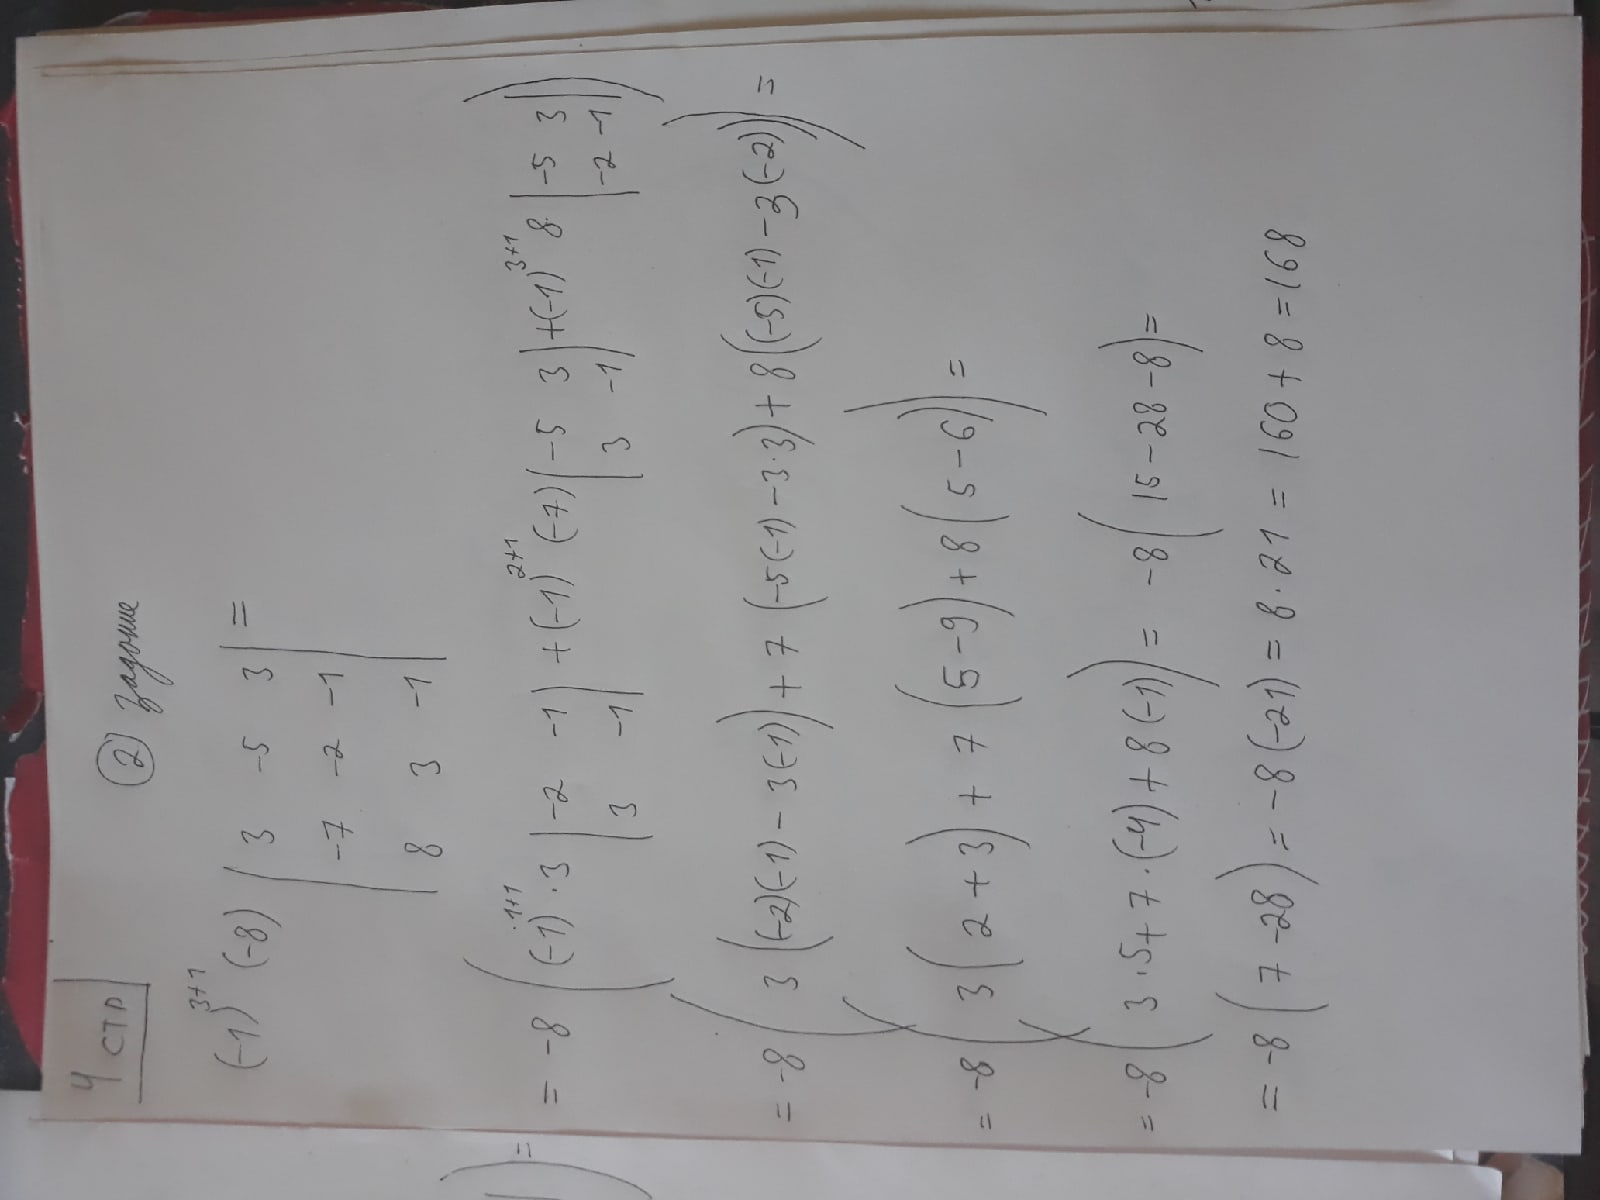 4 стр
② задание
(-1)^{3+1} (-8) | 3 -5 3 | =
-7 -2 -1
8 3 -1
= -8 ( (-1)^{1+1} · 3 | -2 -1 | + (-1)^{2+1} (-7) | -5 3 | + (-1)^{3+1} 8 | -5 3 | )
3 -1 3 -1 -2 -1
= -8 ( 3 ( (-2)(-1) - 3(-1) ) + 7 ( -5(-1) - 3·3 ) + 8 ( (-5)(-1) - 3(-2) ) ) =
= -8 ( 3 ( 2 + 3 ) + 7 ( 5 - 9 ) + 8 ( 5 - 6 ) ) =
= -8 ( 3 · 5 + 7 · (-4) + 8 (-1) ) = -8 ( 15 - 28 - 8 ) =
= -8 ( 7 - 28 ) = -8 (-21) = 8 · 21 = 160 + 8 = 168